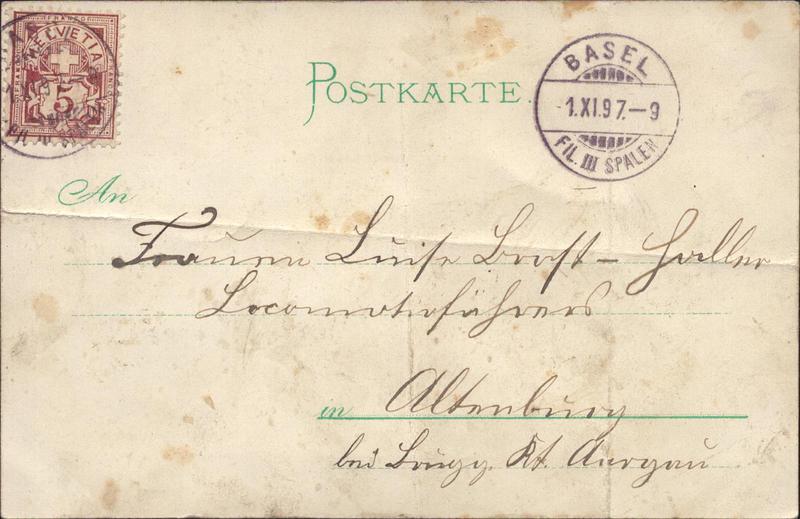 FRANCO
HELVETIA
5
POSTKARTE.
BASEL
-1.XI.97.-9
FIL. III SPALEN
An
Frauen Luise Brost - Haller
Locomotivführers
in Altenburg
bei Brugg Kt. Aargau